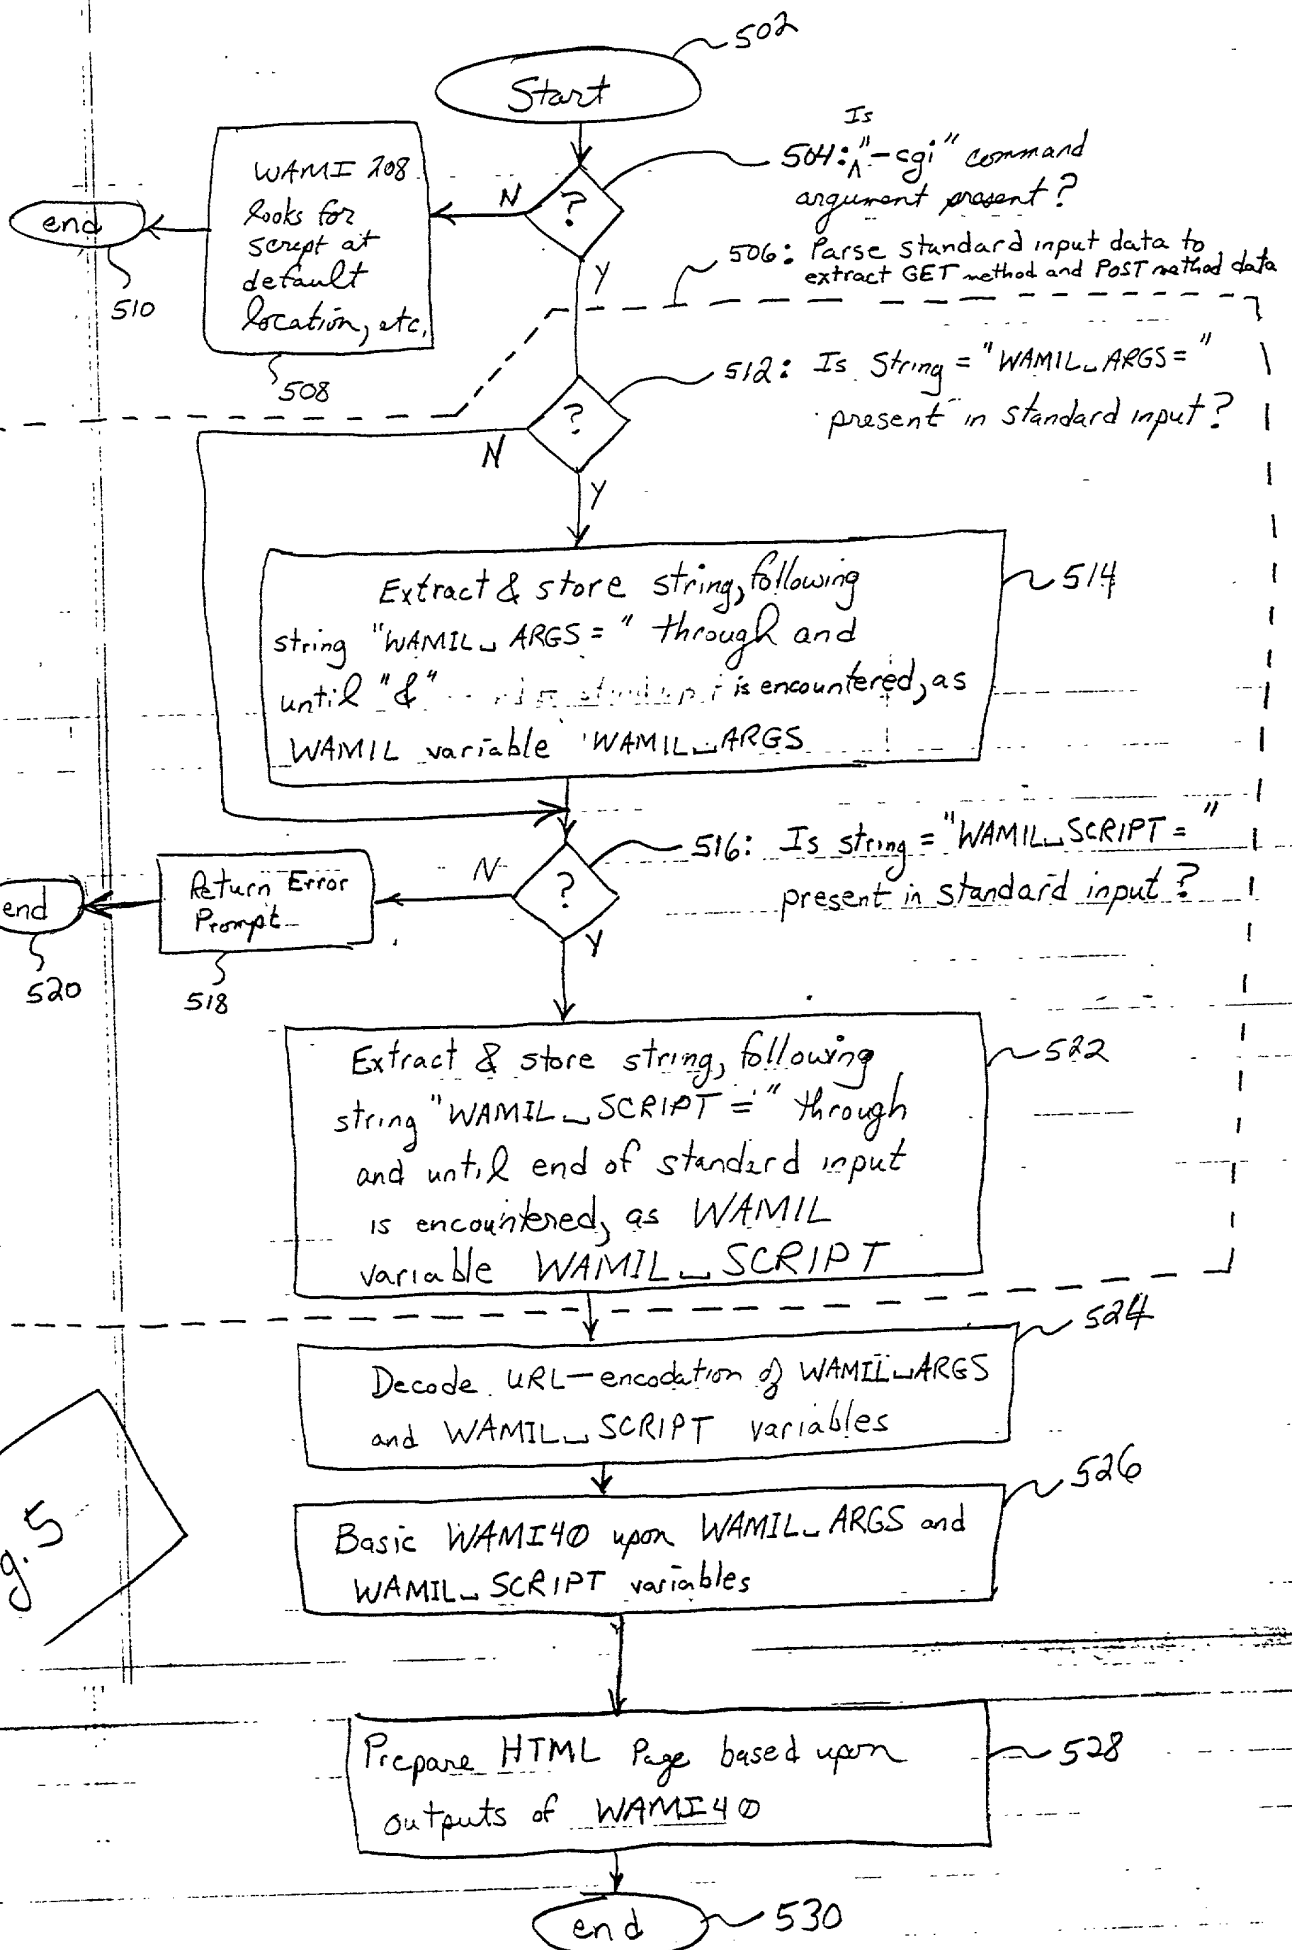 502
Start
Is
504: ^"-cgi" command
argument present?
?
N
Y
WAMI 208
looks for
script at
default
location, etc.
508
end
510
506: Parse standard input data to
extract GET method and POST method data
512: Is String = "WAMIL␣ARGS="
present in standard input?
?
N
Y
Extract & store string, following
string "WAMIL␣ARGS=" through and
until "&" is encountered, as
WAMIL variable WAMIL␣ARGS
514
516: Is string = "WAMIL␣SCRIPT="
present in standard input?
?
N
Y
Return Error
Prompt
518
end
520
Extract & store string, following
string "WAMIL␣SCRIPT=" through
and until end of standard input
is encountered, as WAMIL
variable WAMIL␣SCRIPT
522
524
Decode URL-encodation of WAMIL␣ARGS
and WAMIL␣SCRIPT variables
526
Basic WAMI40 upon WAMIL␣ARGS and
WAMIL␣SCRIPT variables
g. 5
Prepare HTML Page based upon
outputs of WAMI40
528
end
530